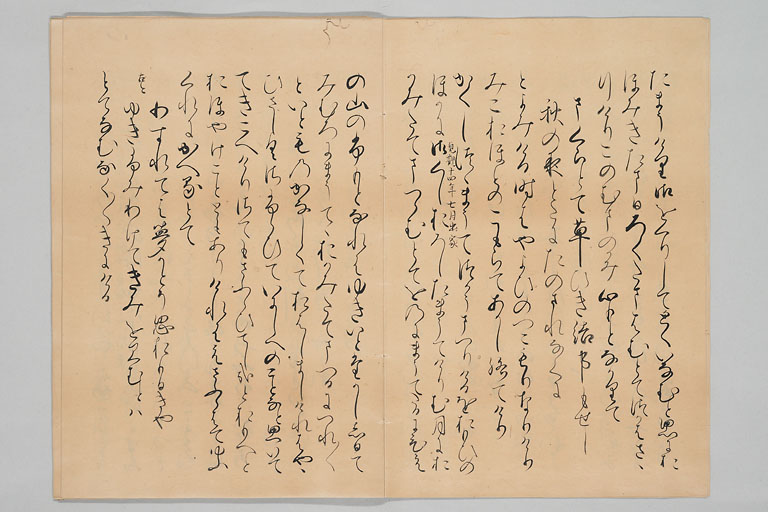 たまうけり御をくりしてとくいなむと思にお
ほみきたまひろくたまはむとてつかはさゝ
りけりこのむまのかみ心もとなかりて
まくらとて草ひき結事もせし
秋の夜とたにたのまれなくに
とよみける時はやよひのつこもりなりけり
みこおほとのこもらてあかし給てけり
かくしつゝまうてつかうまつりけるをおもひの
貞観十四年七月出家
ほかに御くしおろしたまうてけりむ月にお
かみたてまつらむとてをのにまうてたるにひえ
の山のふもとなれはゆきいとたかししひて
みむろにまうてゝおかみたてまつるにつれ〱
といとものかなしくておはしましけれはやゝ
ひさしくさふらひていにしへのことなと思いて
てきこえけりさてもさふらひてしかなとおもへと
おほやけことゝもありけれはえさふらはて夕
くれにかへるとて
わすれては夢かとそ思おもひきや
ゆきふみわけてきみをみむとは
とてなむなく〱きにける